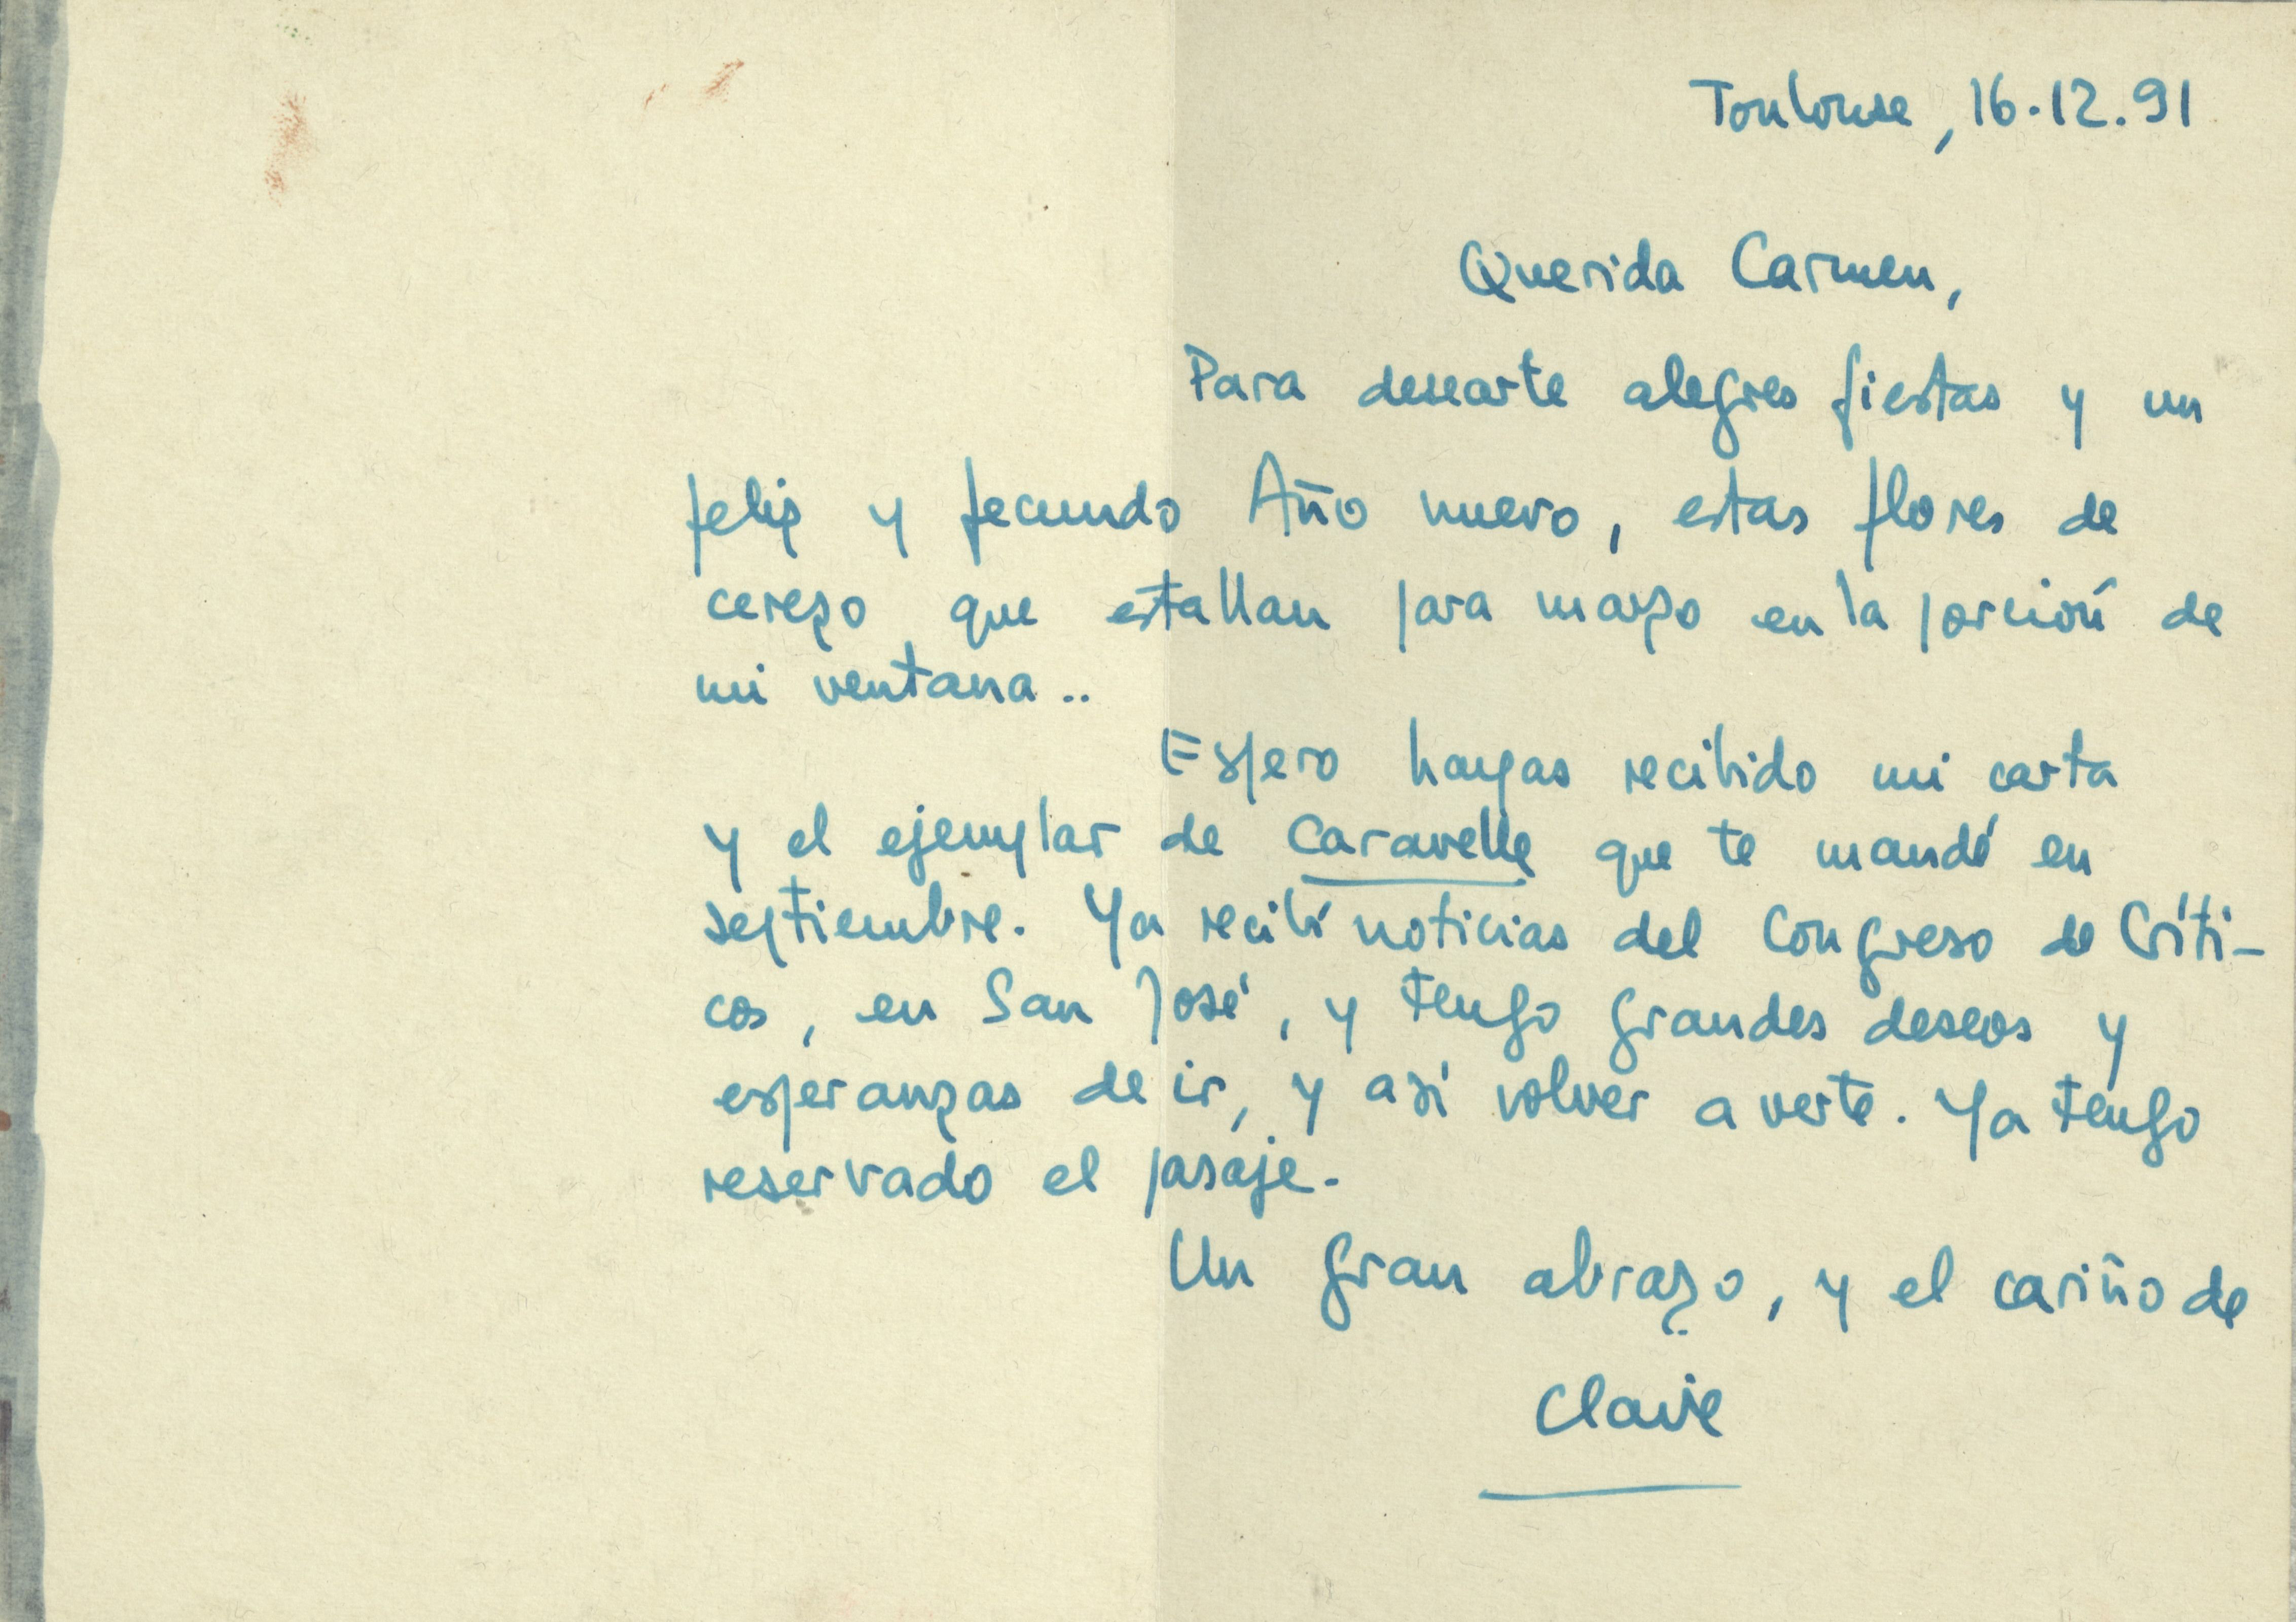 Toulouse, 16.12.91
Querida Carmen,
Para desearte alegres fiestas y un
feliz y fecundo Año nuevo, estas flores de
cerezo que estallan para marzo en la porción de
mi ventana..
Espero hayas recibido mi carta
y el ejemplar de Caravelle que te mandé en
septiembre. Ya recibí noticias del Congreso de Críti-
cos, en San José, y tengo grandes deseos y
esperanzas de ir, y así volver a verte. Ya tengo
reservado el pasaje.
Un gran abrazo, y el cariño de